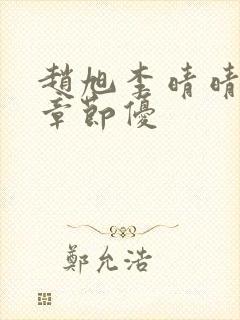 趙旭李晴晴
章節優
鄭允浩